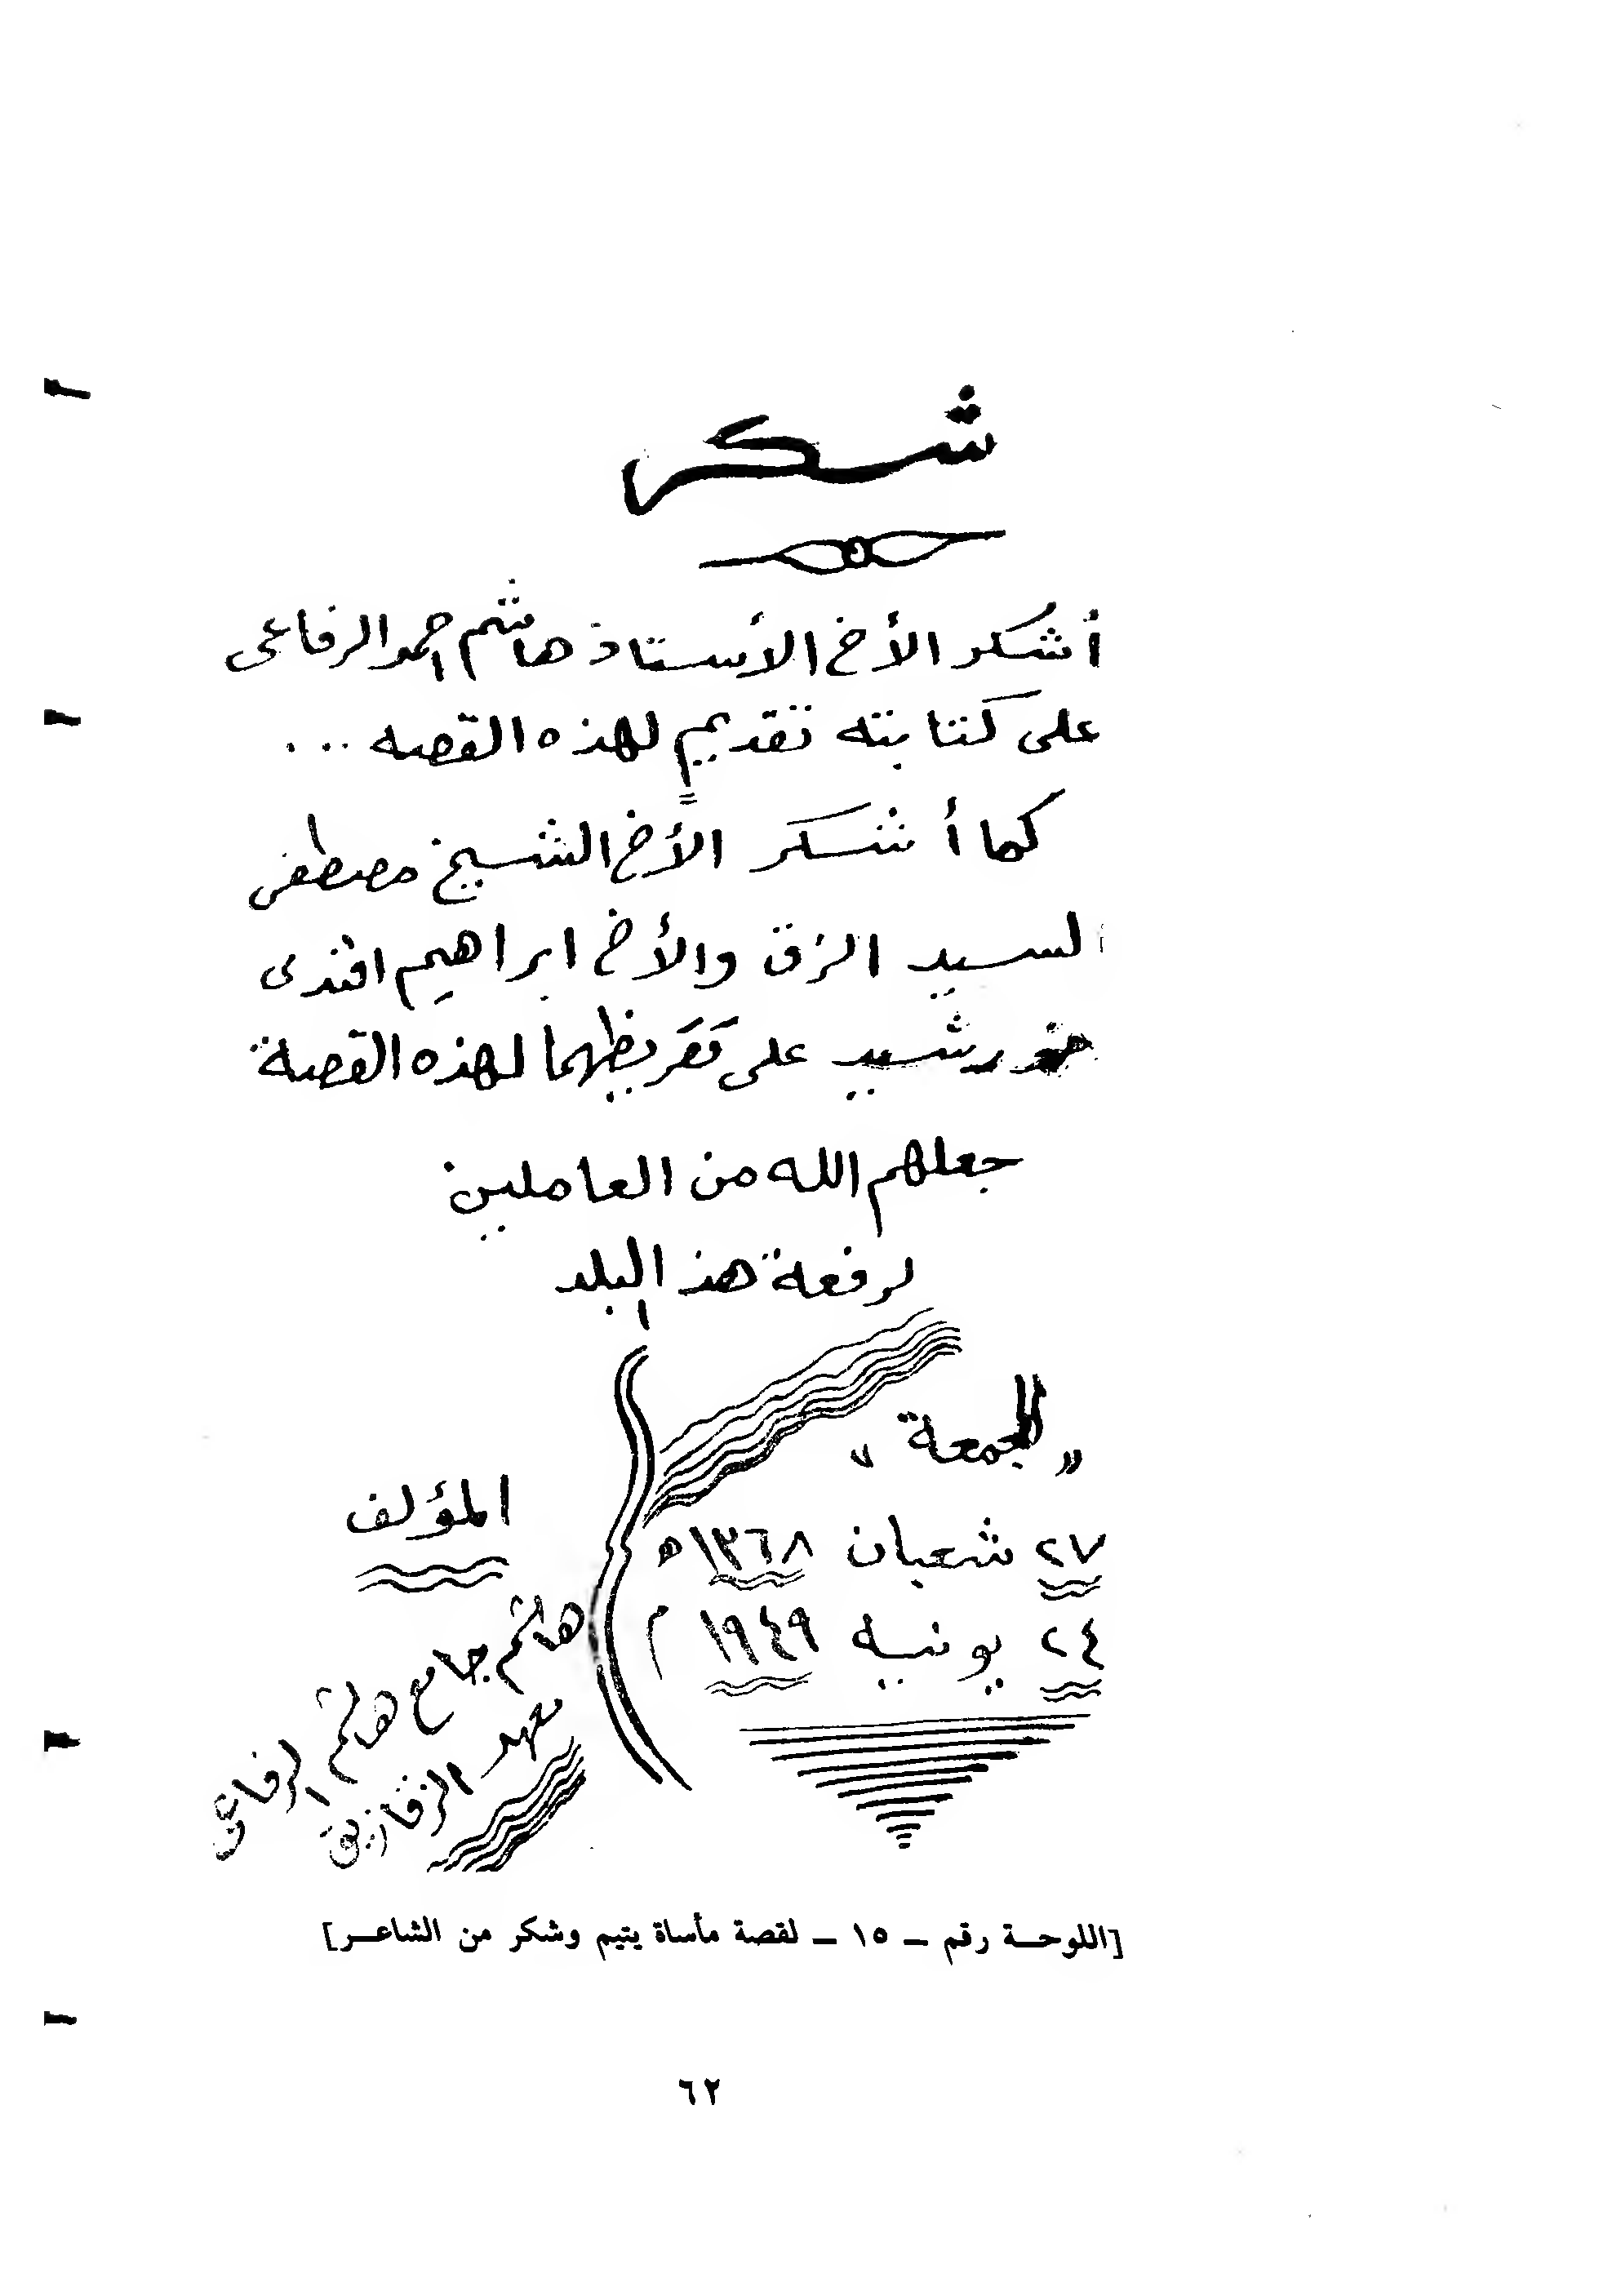 شكر
أشكر الأخ الأستاذ هاشم احمد الرفاعى
على كتابته تقديمٍ لهذه القصه ...
كما أشكر الأخ الشيخ مصطفى
السيد الزق والأخ ابراهيم افندى
خورشيد على تقريظهما لهذه القصة
جعلهم الله من العاملين
لرفعة هذ البلد
"الجمعة"
٢٧ شعبان ١٣٦٨ ه
٢٤ يونيه ١٩٤٩ م
المؤلف
هاشم جامع هاشم الرفاعى
معهد الزقازيق
[اللوحة رقم - ١٥ - لقصة مأساة يتيم وشكر من الشاعر]
٦٢